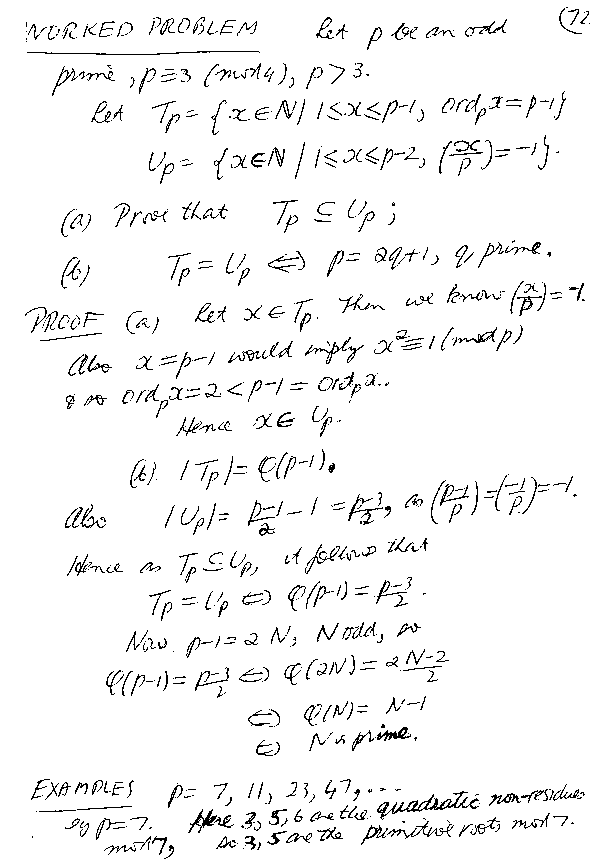 WORKED PROBLEM Let p be an odd (72
prime, p≡3 (mod 4), p>3.
Let Tp = {x∈N | 1≤x≤p-1, ord_p x = p-1}
Up = {x∈N | 1≤x≤p-2, (x/p) = -1}.
(a) Prove that Tp ⊆ Up;
(b) Tp = Up ⇔ p = 2q+1, q prime.
PROOF (a) Let x∈Tp. Then we know (x/p) = -1.
Also x=p-1 would imply x²≡1 (mod p)
& so ord_p x = 2 < p-1 = ord_p x.
Hence x∈ Up.
(b). |Tp| = φ(p-1).
Also |Up| = (p-1)/2 - 1 = (p-3)/2, as ((p-1)/p) = (-1/p) = -1.
Hence as Tp ⊆ Up, it follows that
Tp = Up ⇔ φ(p-1) = (p-3)/2.
Now p-1 = 2N, N odd, so
φ(p-1) = (p-3)/2 ⇔ φ(2N) = (2N-2)/2
⇔ φ(N) = N-1
⇔ N is prime.
EXAMPLES p = 7, 11, 23, 47, ...
eg p=7. Here 3, 5, 6 are the quadratic non-residues
mod 7, so 3, 5 are the primitive roots mod 7.